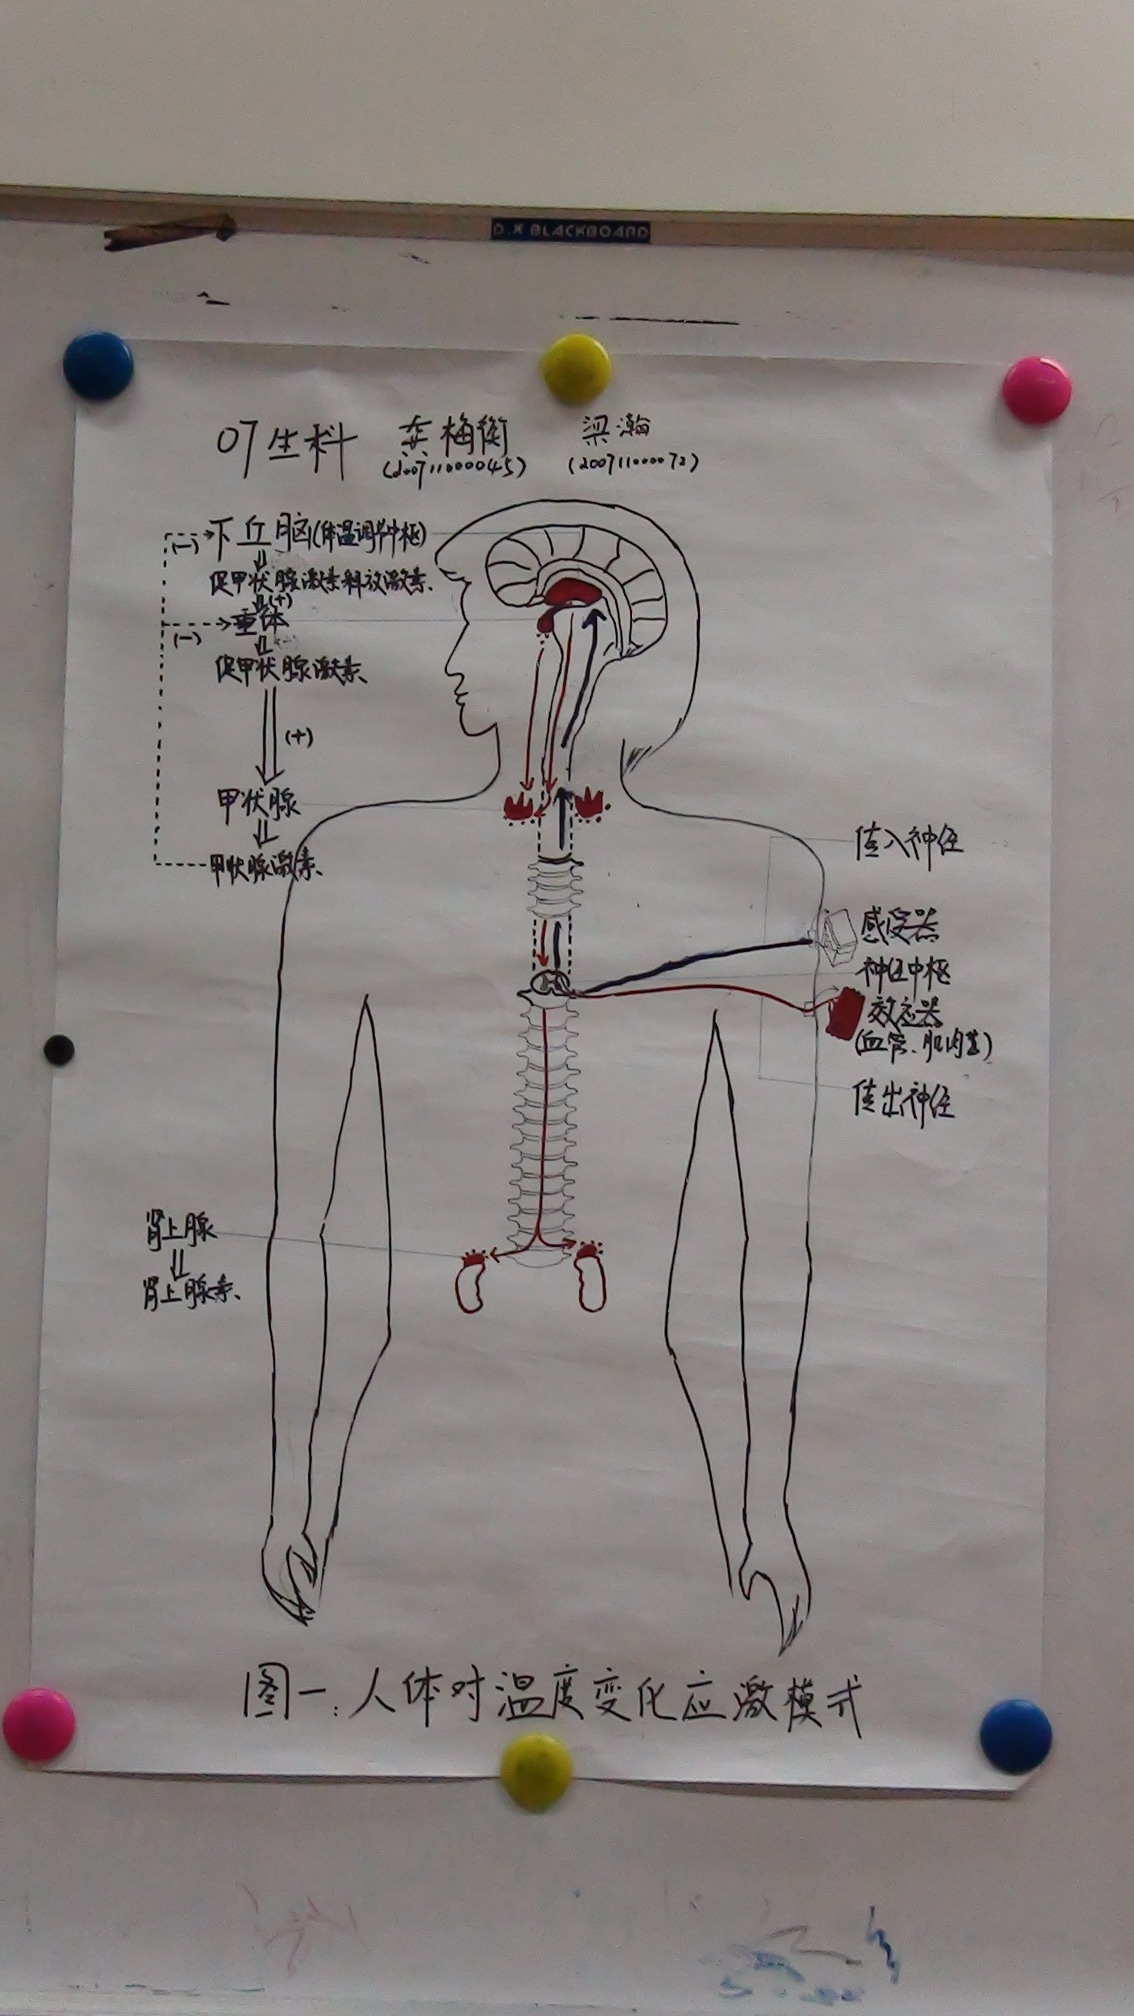 D.X BLACKBOARD
07生科 龚梅衡 梁瀚
(200711000045) (200711000072)
下丘脑(体温调节中枢)
(一)
促甲状腺激素释放激素
(+)
垂体
(一)
促甲状腺激素
(+)
甲状腺
甲状腺激素
传入神经
感受器
神经中枢
效应器
(血管、肌肉等)
传出神经
肾上腺
肾上腺素
图一:人体对温度变化应激模式